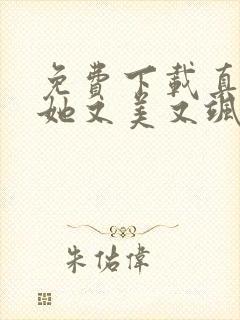 免费下载真
她又美又飒
朱佑偉